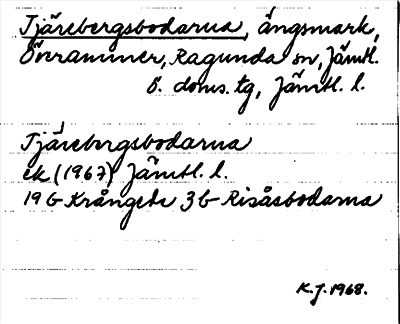 Tjärebergsbodarna, ängsmark,
Överammer, Ragunda sn, Jämtl.
ö. doms. tg, Jämtl. l.
Tjärebergsbodarna
ek (1967) Jämtl. l.
19 G Krångede 3b Risåsbodarna
K.J. 1968.